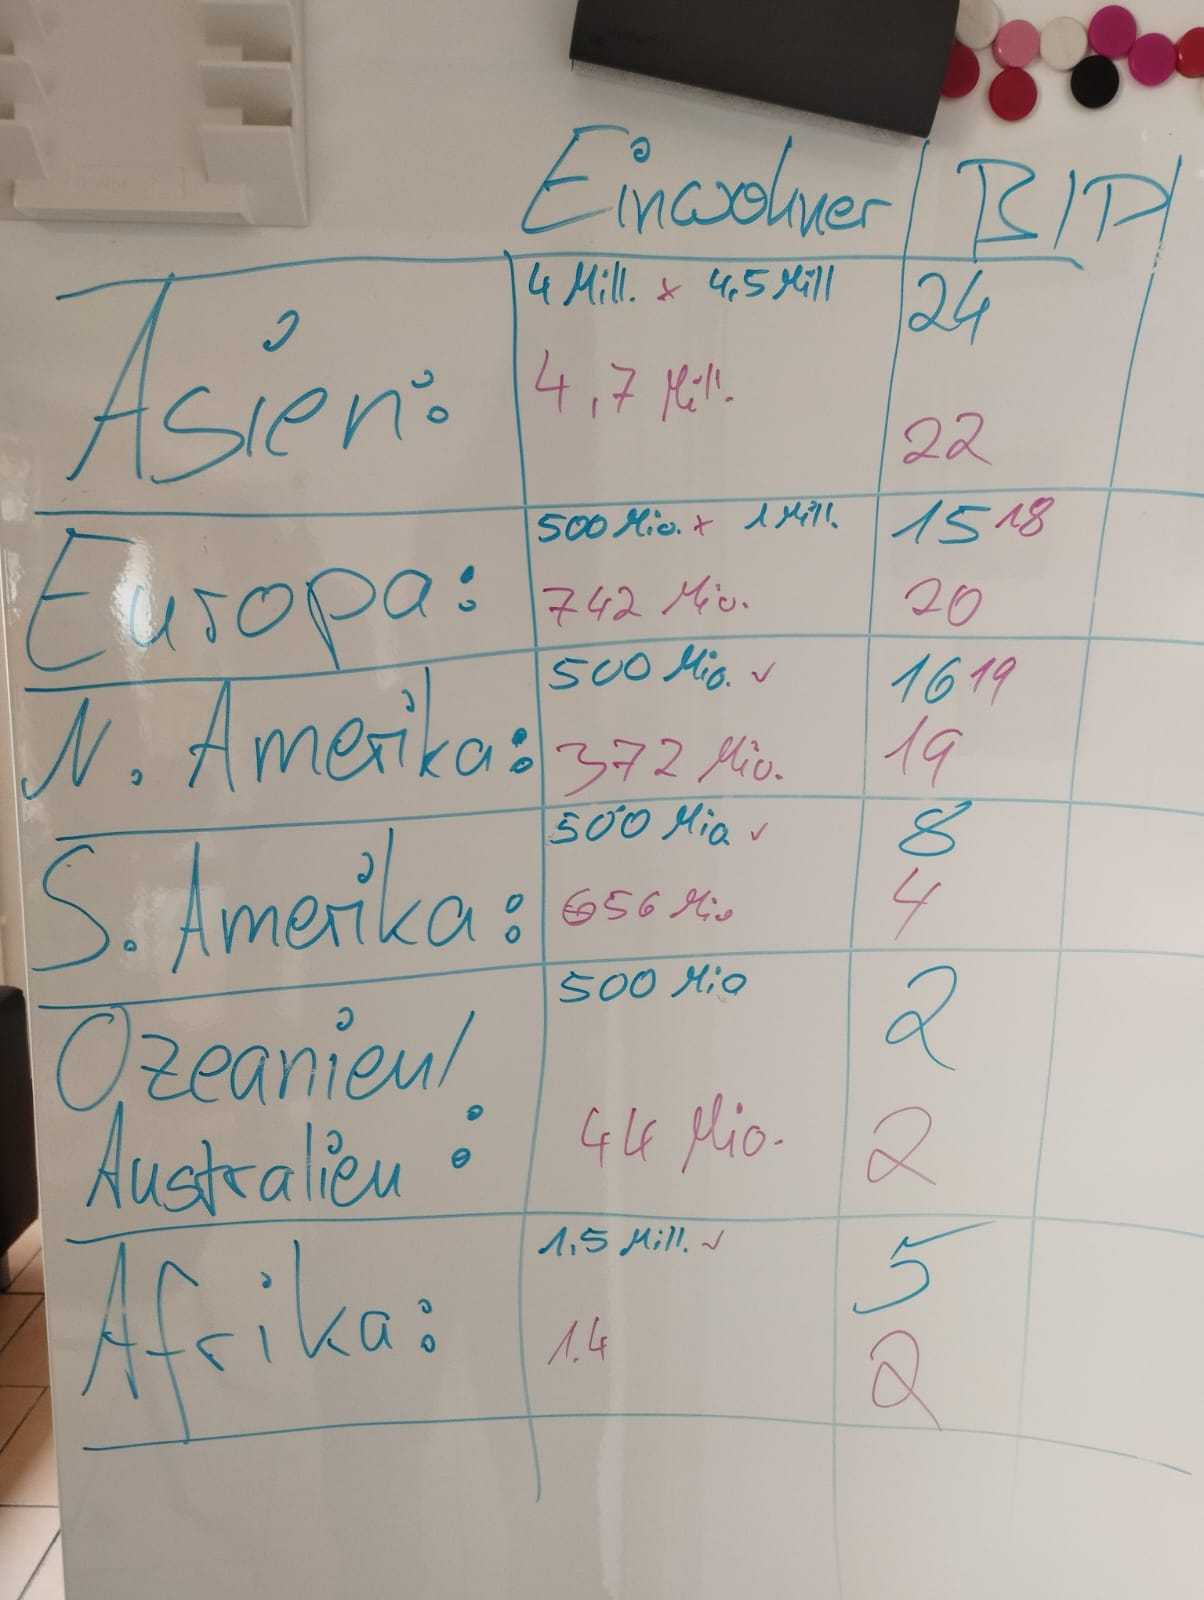 Einwohner BIP
4 Mill. x 4,5 Mill 24
Asien: 4,7 Mill. 22
500 Mio. x 1 Mill. 15 18
Europa: 742 Mio. 20
500 Mio. ✓ 16 19
N. Amerika: 372 Mio. 19
500 Mio ✓ 8
S. Amerika: 656 Mio 4
500 Mio 2
Ozeanien/
Australien : 44 Mio. 2
1,5 Mill. ✓ 5
Afrika: 1.4 2